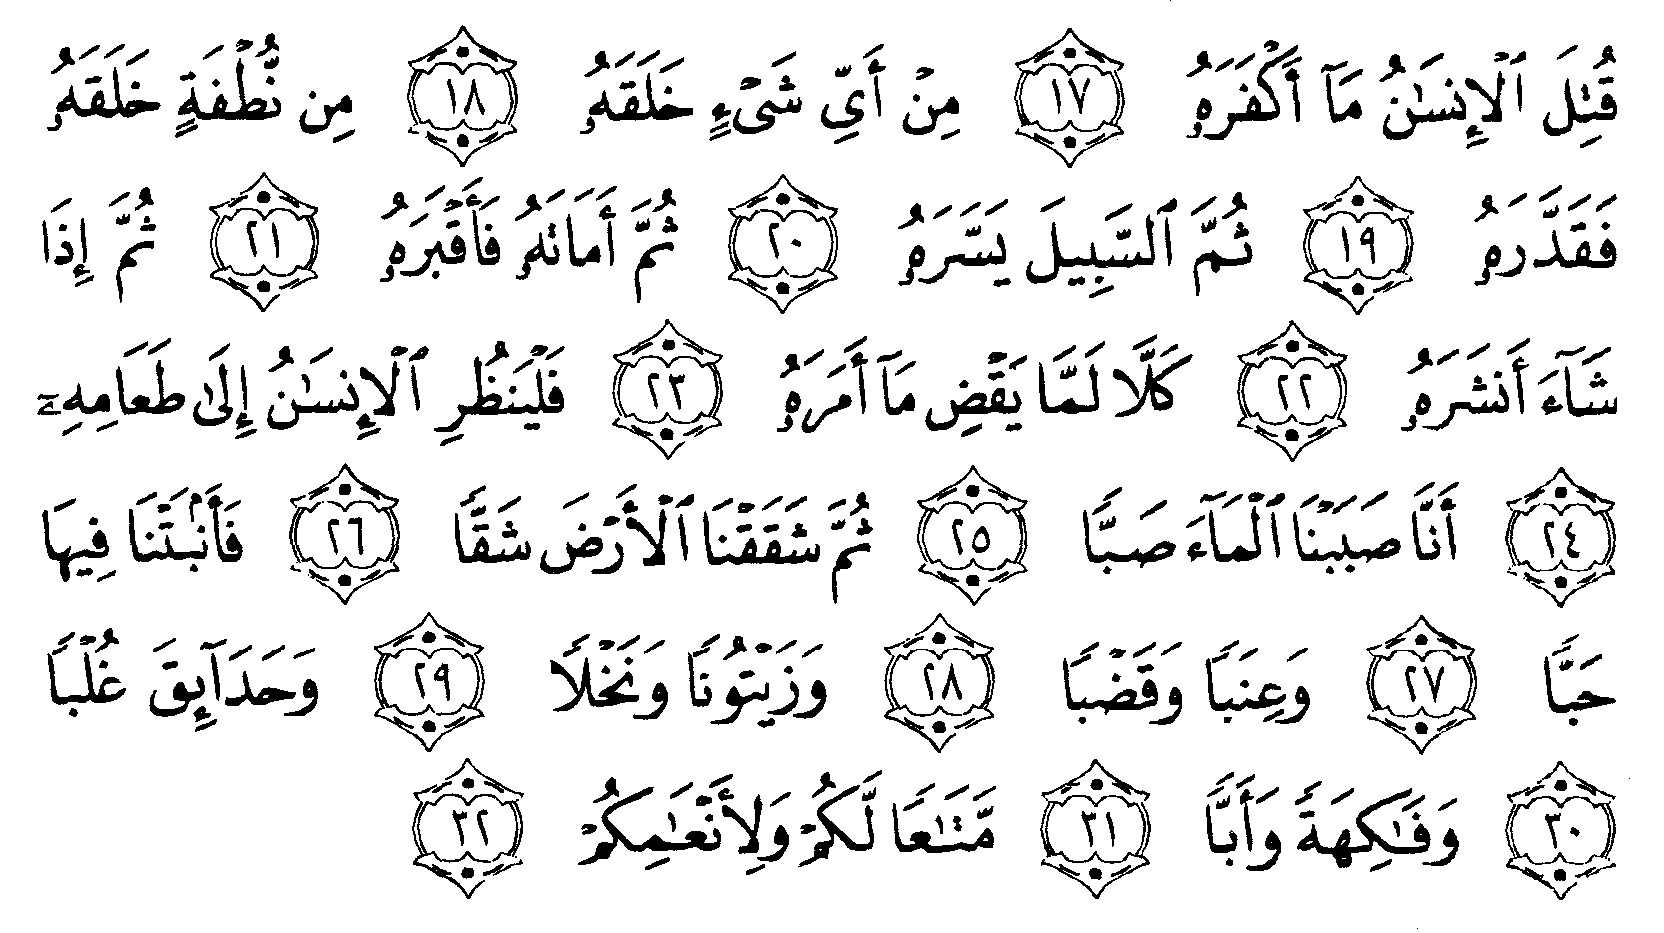 قُتِلَ ٱلْإِنسَٰنُ مَآ أَكْفَرَهُۥ ١٧ مِنْ أَىِّ شَىْءٍ خَلَقَهُۥ ١٨ مِن نُّطْفَةٍ خَلَقَهُۥ
فَقَدَّرَهُۥ ١٩ ثُمَّ ٱلسَّبِيلَ يَسَّرَهُۥ ٢٠ ثُمَّ أَمَاتَهُۥ فَأَقْبَرَهُۥ ٢١ ثُمَّ إِذَا
شَآءَ أَنشَرَهُۥ ٢٢ كَلَّا لَمَّا يَقْضِ مَآ أَمَرَهُۥ ٢٣ فَلْيَنظُرِ ٱلْإِنسَٰنُ إِلَىٰ طَعَامِهِۦٓ
٢٤ أَنَّا صَبَبْنَا ٱلْمَآءَ صَبًّا ٢٥ ثُمَّ شَقَقْنَا ٱلْأَرْضَ شَقًّا ٢٦ فَأَنۢبَتْنَا فِيهَا
حَبًّا ٢٧ وَعِنَبًا وَقَضْبًا ٢٨ وَزَيْتُونًا وَنَخْلًا ٢٩ وَحَدَآئِقَ غُلْبًا
٣٠ وَفَٰكِهَةً وَأَبًّا ٣١ مَّتَٰعًا لَّكُمْ وَلِأَنْعَٰمِكُمْ ٣٢